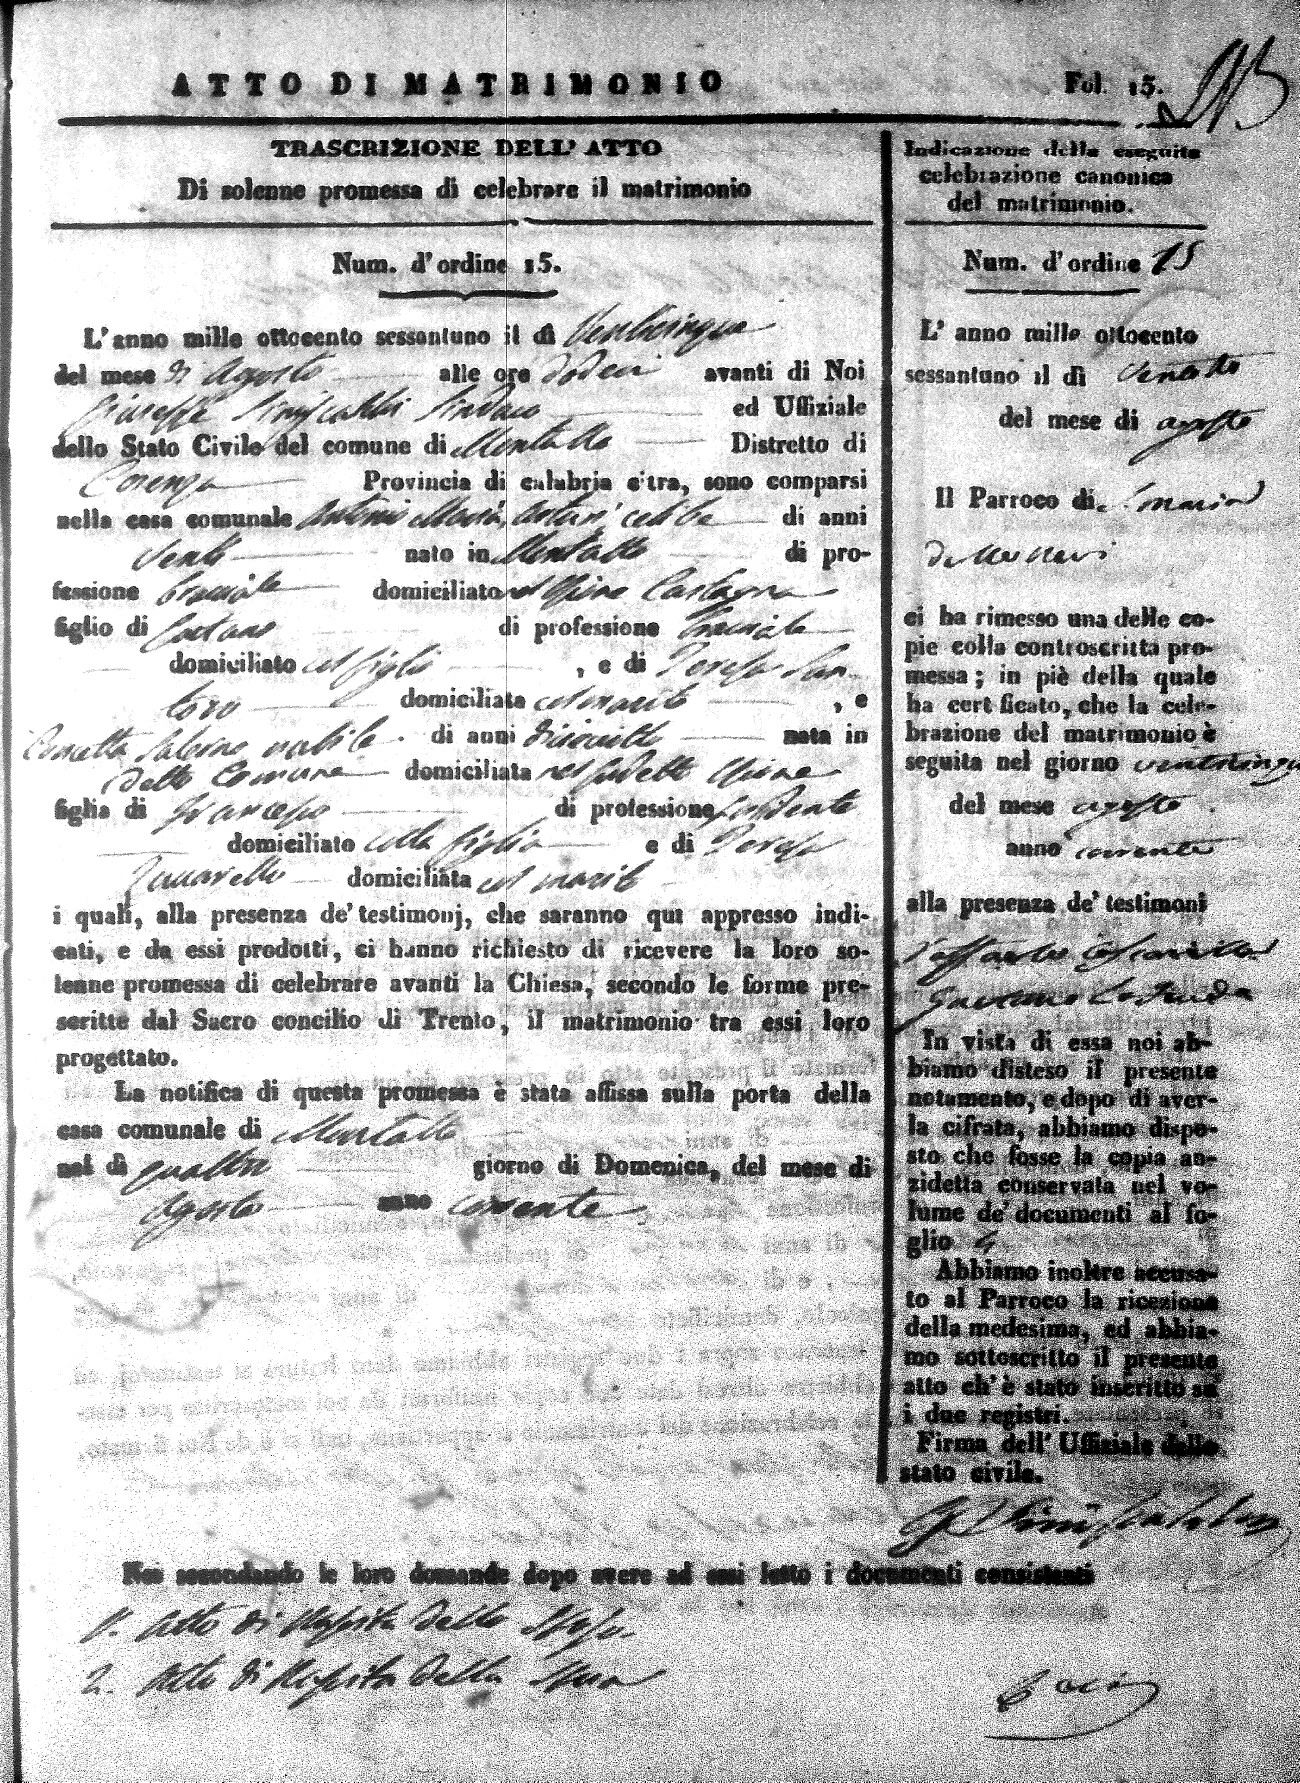 ATTO DI MATRIMONIO
Fol. 15.
TRASCRIZIONE DELL' ATTO
Di solenne promessa di celebrare il matrimonio
Num. d'ordine 15.
L'anno mille ottocento sessantuno il dì Venticinque
del mese di Agosto alle ore dodeci avanti di Noi
Giuseppe Sindaco ed Uffiziale
dello Stato Civile del comune di Montalto Distretto di
Cosenza Provincia di calabria citra, sono comparsi
nella casa comunale Antonio Maria celibe di anni
venti nato in Montalto di pro-
fessione bracciale domiciliato
figlio di Gaetano di professione bracciale
domiciliato col figlio , e di Teresa San-
toro domiciliata col marito , e
Salerno nubile di anni diciotto nata in
detto Comune domiciliata nel
figlia di Francesco di professione
domiciliato colla figlia e di Teresa
domiciliata col marito
i quali, alla presenza de' testimonj, che saranno qui appresso indi-
cati, e da essi prodotti, ci hanno richiesto di ricevere la loro so-
lenne promessa di celebrare avanti la Chiesa, secondo le forme pre-
scritte dal Sacro concilio di Trento, il matrimonio tra essi loro
progettato.
La notifica di questa promessa è stata affissa sulla porta della
casa comunale di Montalto
nel dì quattro giorno di Domenica, del mese di
Agosto anno corrente
Indicazione della eseguita
celebrazione canonica
del matrimonio.
Num. d'ordine 15
L' anno mille ottocento
sessantuno il dì ventotto
del mese di agosto
Il Parroco di S. Maria
ci ha rimesso una delle co-
pie colla controscritta pro-
messa; in piè della quale
ha certificato, che la cele-
brazione del matrimonio è
seguita nel giorno venticinque
del mese agosto
anno corrente
alla presenza de' testimoni
Gaetano
In vista di essa noi ab-
biamo disteso il presente
notamento, e dopo di aver-
la cifrata, abbiamo dispo-
sto che fosse la copia an-
zidetta conservata nel vo-
lume de' documenti al fo-
glio 4
Abbiamo inoltre accusa-
to al Parroco la ricezione
della medesima, ed abbia-
mo sottoscritto il presente
atto ch' è stato inscritto su
i due registri.
Firma dell' Uffiziale dello
stato civile.
Noi secondando le loro domande dopo avere ad essi letto i documenti consistenti
1. Atto di Nascita dello Sposo
2. Atto di Nascita della Sposa